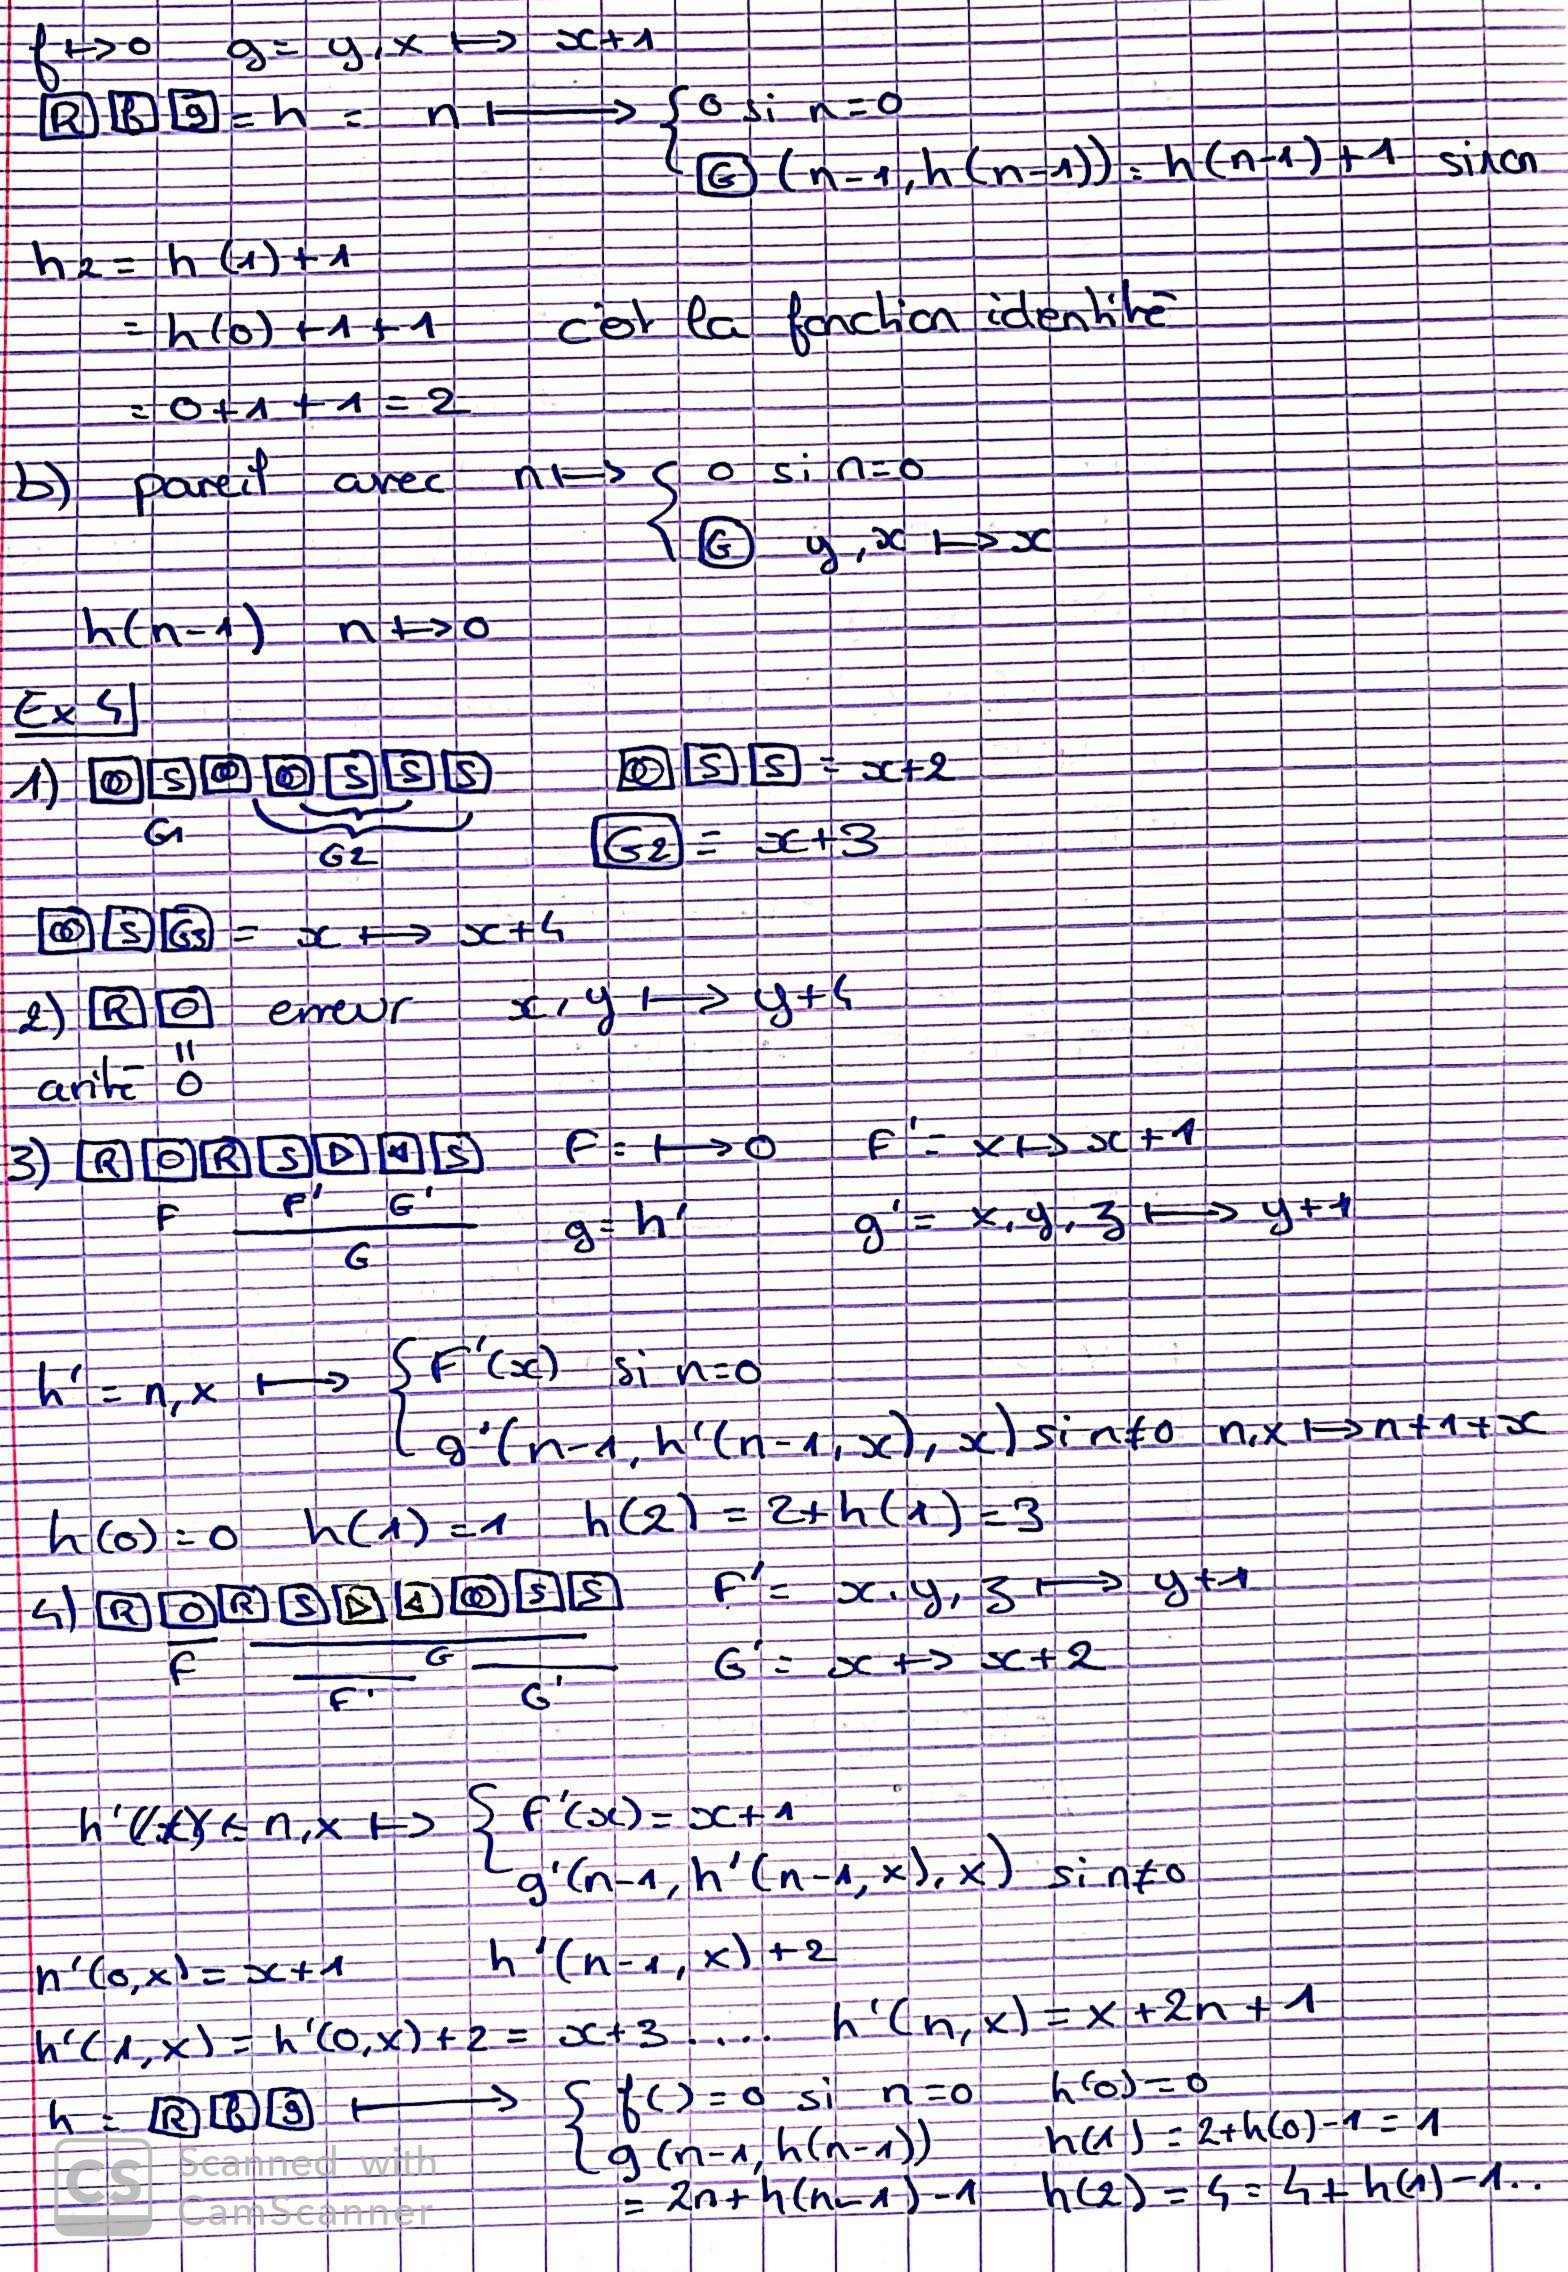 f ↦ 0 g = y, x ↦ x+1
[R] [f] [g] = h = n ↦ { 0 si n=0
[G] (n-1, h(n-1)) = h(n-1)+1 sinon
h2 = h(1)+1
= h(0)+1+1 c'est la fonction identité
= 0+1+1=2
b) pareil avec n ↦ { 0 si n=0
[G] y, x ↦ x
h(n-1) n ↦ 0
Ex 4
1) [◎] [S] [◎] [◎] [S] [S] [S] [◎] [S] [S] = x+2
G1 G2 [G2] = x+3
[◎] [S] [G3] = x ↦ x+4
2) [R] [O] erreur x, y ↦ y+4
arité 0
3) [R] [O] [R] [S] [▷] [◁] [S] F = ↦ 0 F' = x ↦ x+1
F F' G' g = h' g' = x, y, z ↦ y+1
G
h' = n, x ↦ { F'(x) si n=0
g'(n-1, h'(n-1, x), x) si n≠0 n, x ↦ n+1+x
h(0)=0 h(1)=1 h(2) = 2+h(1) = 3
4) [R] [O] [R] [S] [▷] [◁] [◎] [S] [S] F' = x, y, z ↦ y+1
F F' G G' G' = x ↦ x+2
h' = n, x ↦ { F'(x) = x+1
g'(n-1, h'(n-1, x), x) si n≠0
h'(0, x) = x+1 h'(n-1, x)+2
h'(1, x) = h'(0, x)+2 = x+3 .... h'(n, x) = x+2n+1
h = [R] [f] [g] ↦ { f() = 0 si n=0 h(0)=0
g(n-1, h(n-1)) h(1) = 2+h(0)-1 = 1
= 2n+h(n-1)-1 h(2) = 4 = 4+h(1)-1..
CS Scanned with
CamScanner